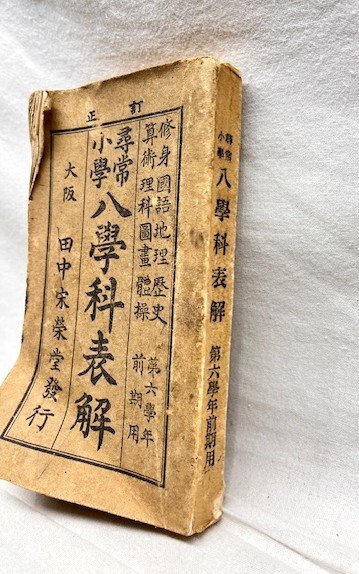 訂正
修身國語地理歷史
算術理科圖畫體操
第六學年
前期用
尋常
小學
八學科表解
大阪
田中宋榮堂發行
尋常
小學
八學科表解
第六學年前期用